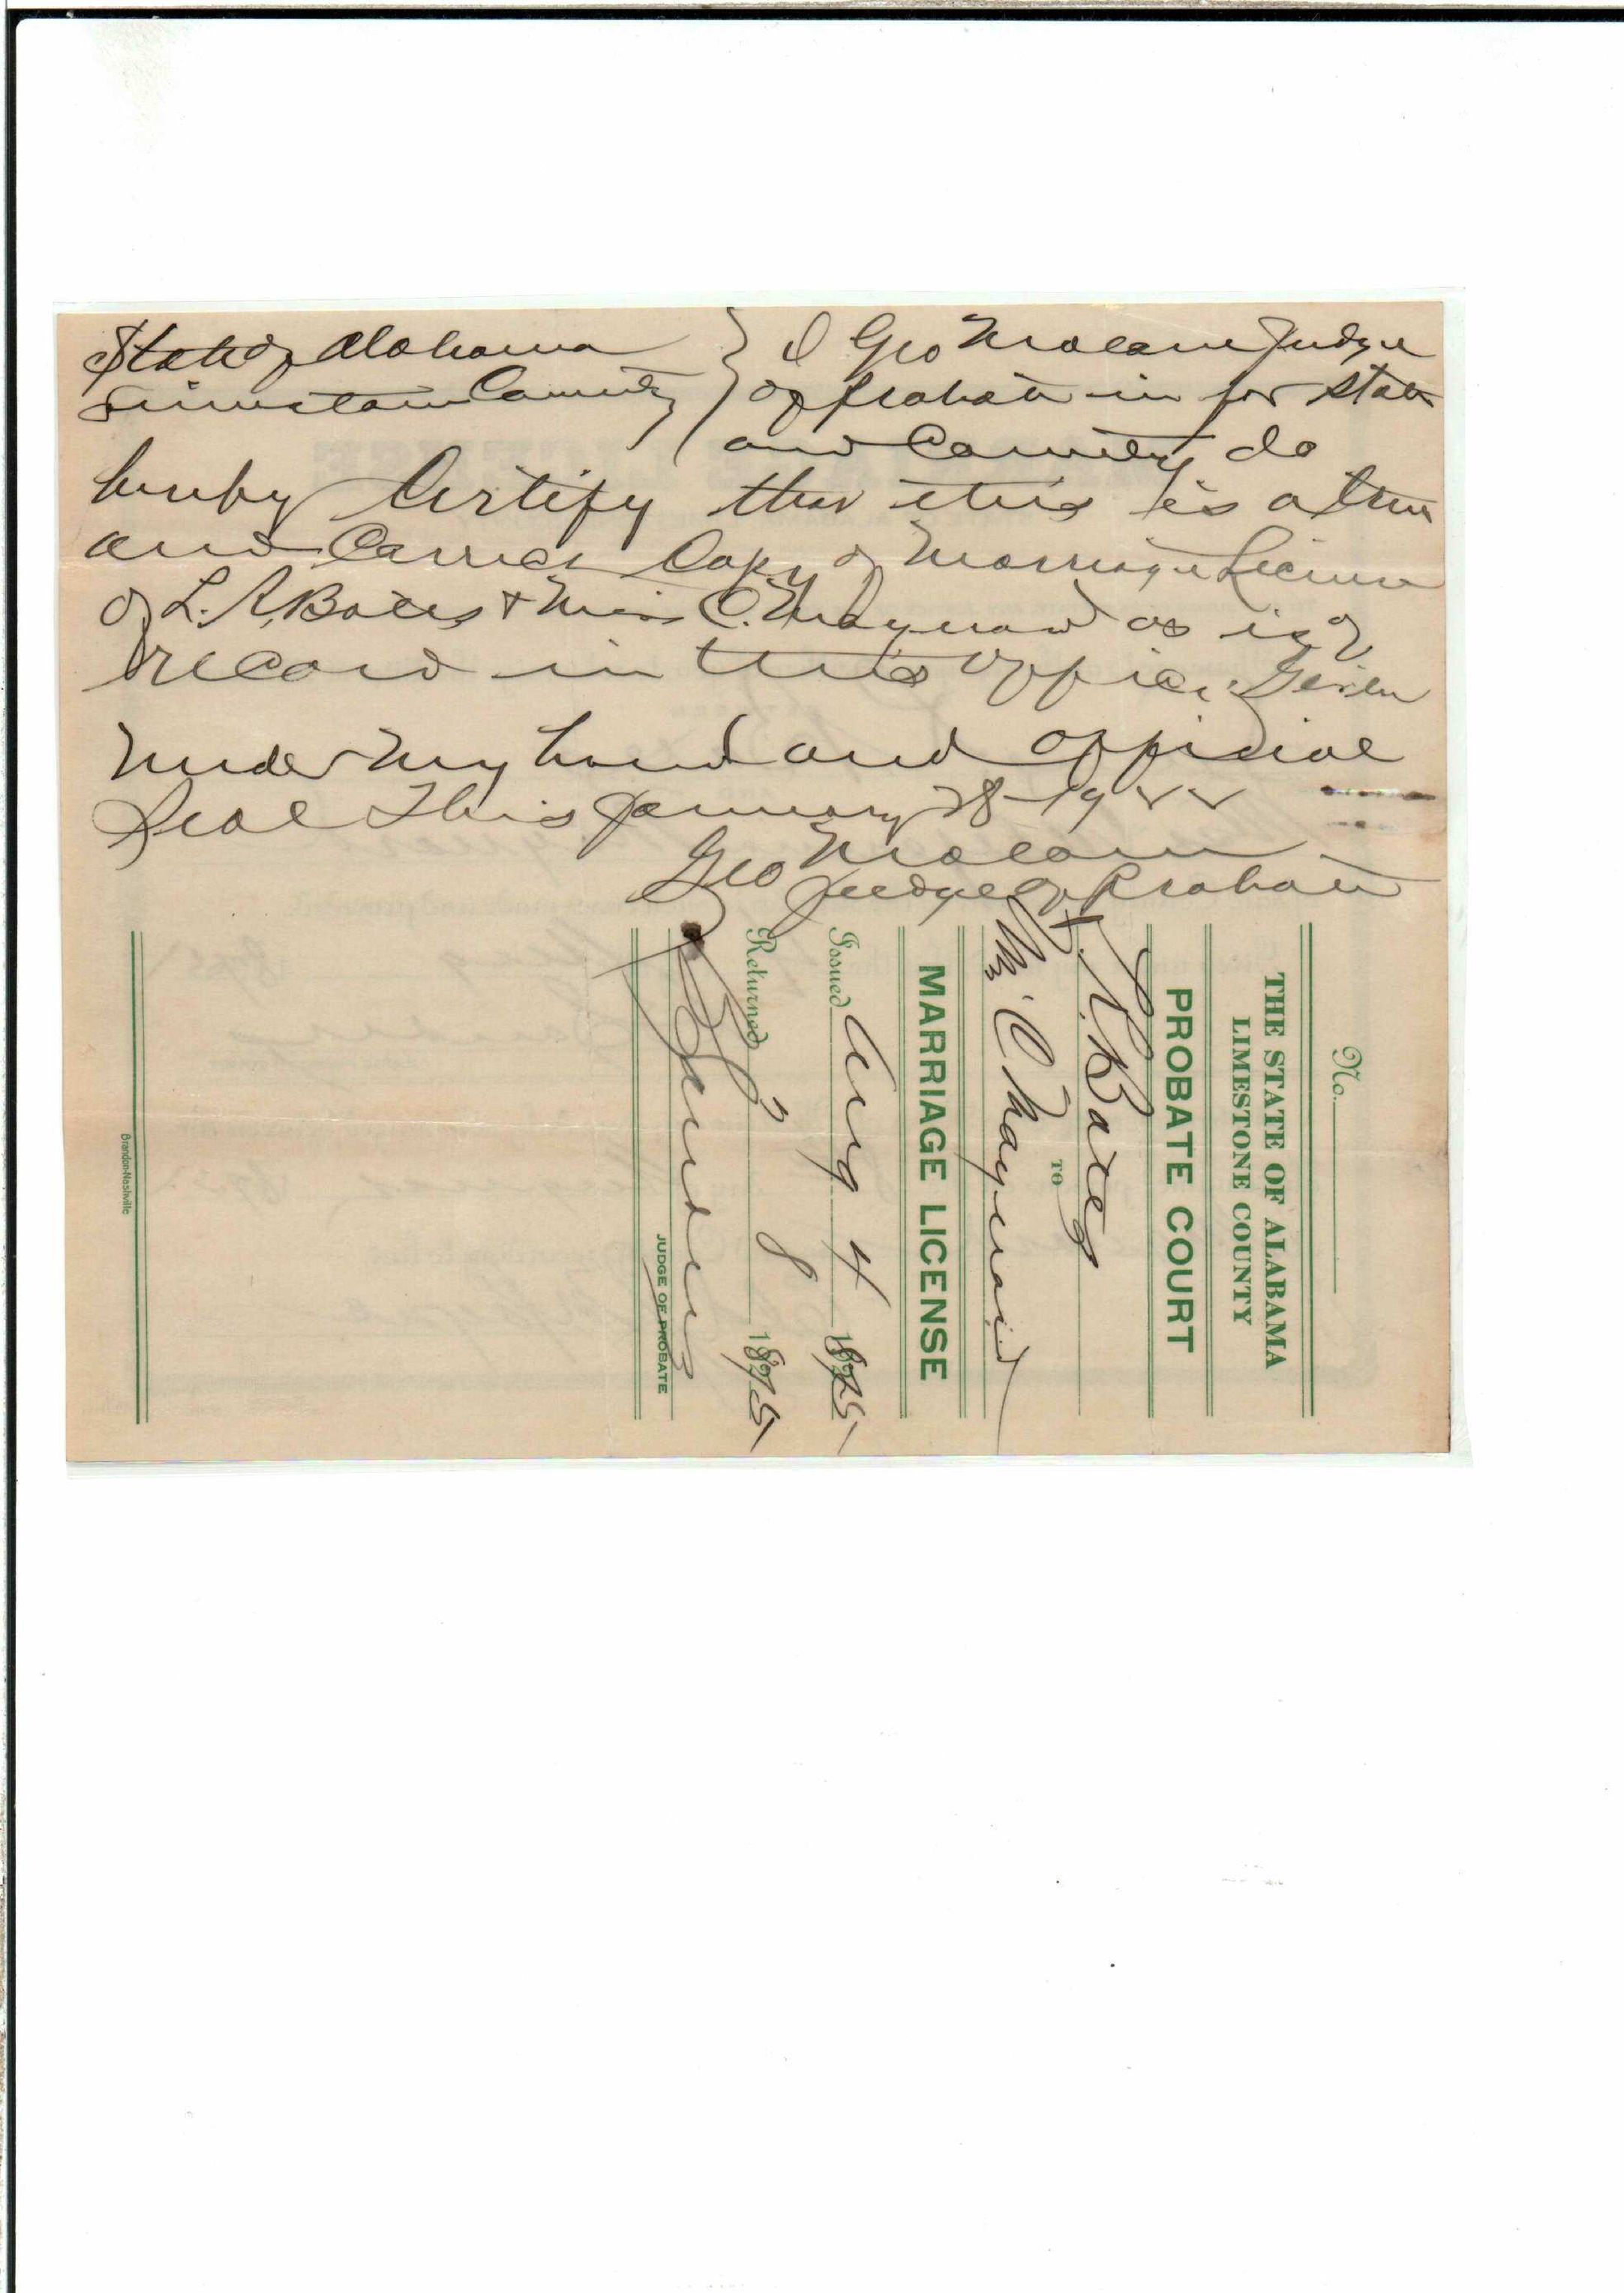 State of Alabama } I Geo Malone Judge
Limestone County } of Probate in for State
and County do
hereby Certify that this is a true
and Correct Copy of Marriage License
of L. A. Bates & Miss C. Maynard as is of
record in this office. Given
under my hand and official
Seal This January 28-1922
Geo Malone
Judge of Probate
No.
THE STATE OF ALABAMA
LIMESTONE COUNTY
PROBATE COURT
L. A. Bates
TO
C Maynard
MARRIAGE LICENSE
Issued Aug 4 1875
Returned " 8 1875
JUDGE OF PROBATE
Brandon-Nashville